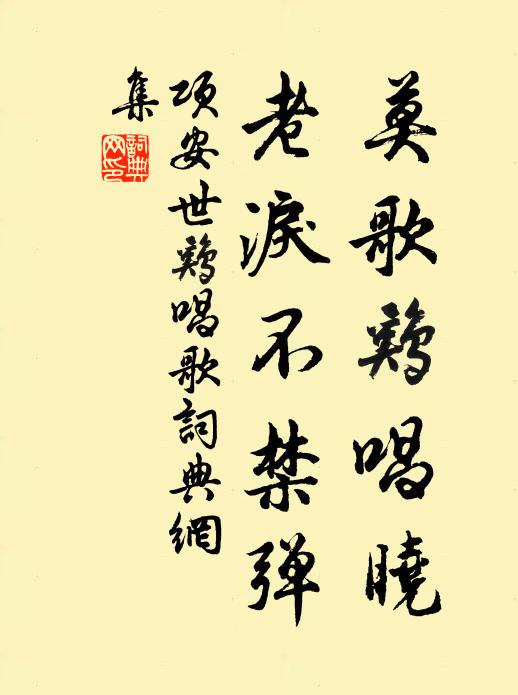 莫歌鷄唱曉
老淚不禁弹
项安世鷄唱歌詞典網
集
詞典
网印